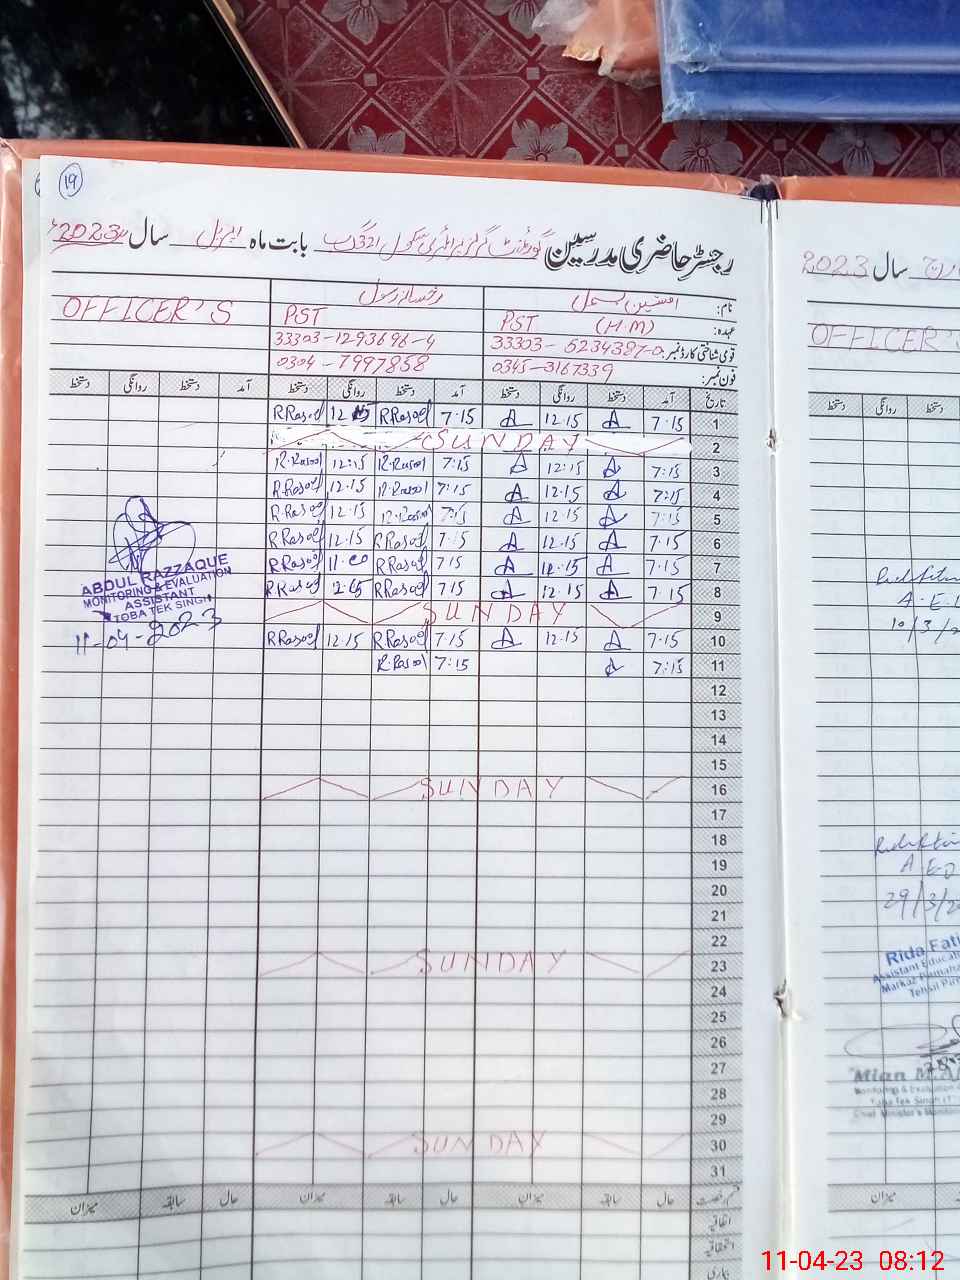 19
رجسٹر حاضری مدرسین گورنمنٹ گرلز پرائمری سکول 321 گ ب بابت ماہ اپریل سال 2023ء
نام: رخسانہ رسول
OFFICER'S
عہدہ: PST (H.M) PST
قومی شناختی کارڈ نمبر: 33303-1293696-4
فون نمبر: 0345-3167339 0304-7997858
تاریخ آمد دستخط روانگی دستخط آمد دستخط روانگی دستخط آمد دستخط روانگی دستخط
1 7.15 A 12.15 A 7.15 R Rasool
2 SUNDAY
3 7:15 A 12:15 A 7:15 R.Rasool 12:15 R.Rasool
4 7:15 A 12.15 A 7:15 R.Rasool 12.15 R.Rasool
5 7:15 A 12.15 A 7:15 R.Rasool 12.15 R.Rasool
6 7.15 A 12.15 A 7.15 R Rasool 12.15 R Rasool
7 7.15 A 12.15 A 7.15 R Rasool R Rasool
8 7.15 A 12.15 A 7.15 R Rasool R Rasool
9 SUNDAY
10 7.15 A 12.15 A 7.15 R Rasool 12.15 R Rasool
11 7:15 A 7:15 R.Rasool
12
13
14
15
16 SUNDAY
17
18
19
20
21
22
23 SUNDAY
24
25
26
27
28
29
30 SUNDAY
31
حال سابقہ میزان حال سابقہ میزان حال سابقہ میزان
اتفاقیہ
استحقاقیہ
بیماری
ABDUL RAZZAQUE
MONITORING & EVALUATION
ASSISTANT
TOBA TEK SINGH
11-04-2023
سال 2023
OFFICER'S
دستخط روانگی دستخط
A.E.
10/3/2
A E.O
29/3/2
Rida Fati
Assistant Educa
Markaz
Tehsil Pir
Mian M.A
Monitoring & Evaluation
Toba Tek Singh
Chief Minister's Monitor
میزان
11-04-23 08:12